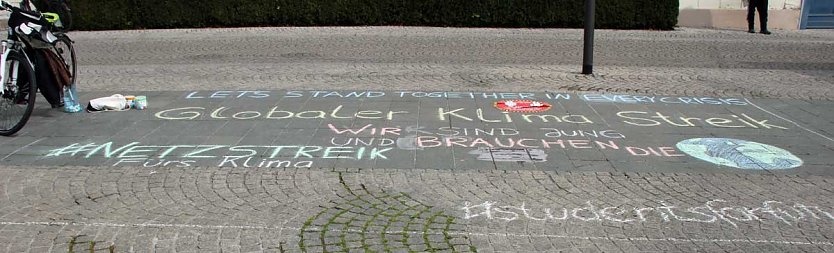 LETS STAND TOGETHER IN EVERY CRISIS
GLOBALER KLIMA STREIK
WIR SIND JUNG
#NETZSTREIK UND BRAUCHEN DIE
FÜRS KLIMA
#studentsforfuture